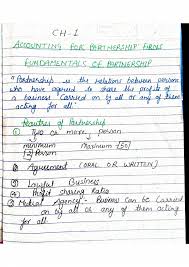 CH-1
ACCOUNTING FOR PARTNERSHIP FIRMS
FUNDAMENTALS OF PARTNERSHIP
"Partnership is the relations between persons
who have agreed to share the profits of
a business Carried on by all or any of them
acting for all."
Features of Partnership
① Two or more person
minimum Maximum [50]
2 Person
② Agreement (ORAL OR WRITTEN)
③ Lawful Business
④ Profit sharing Ratio
⑤ Mutual Agency - Business can be Carried
on by all or any of them acting
for all.